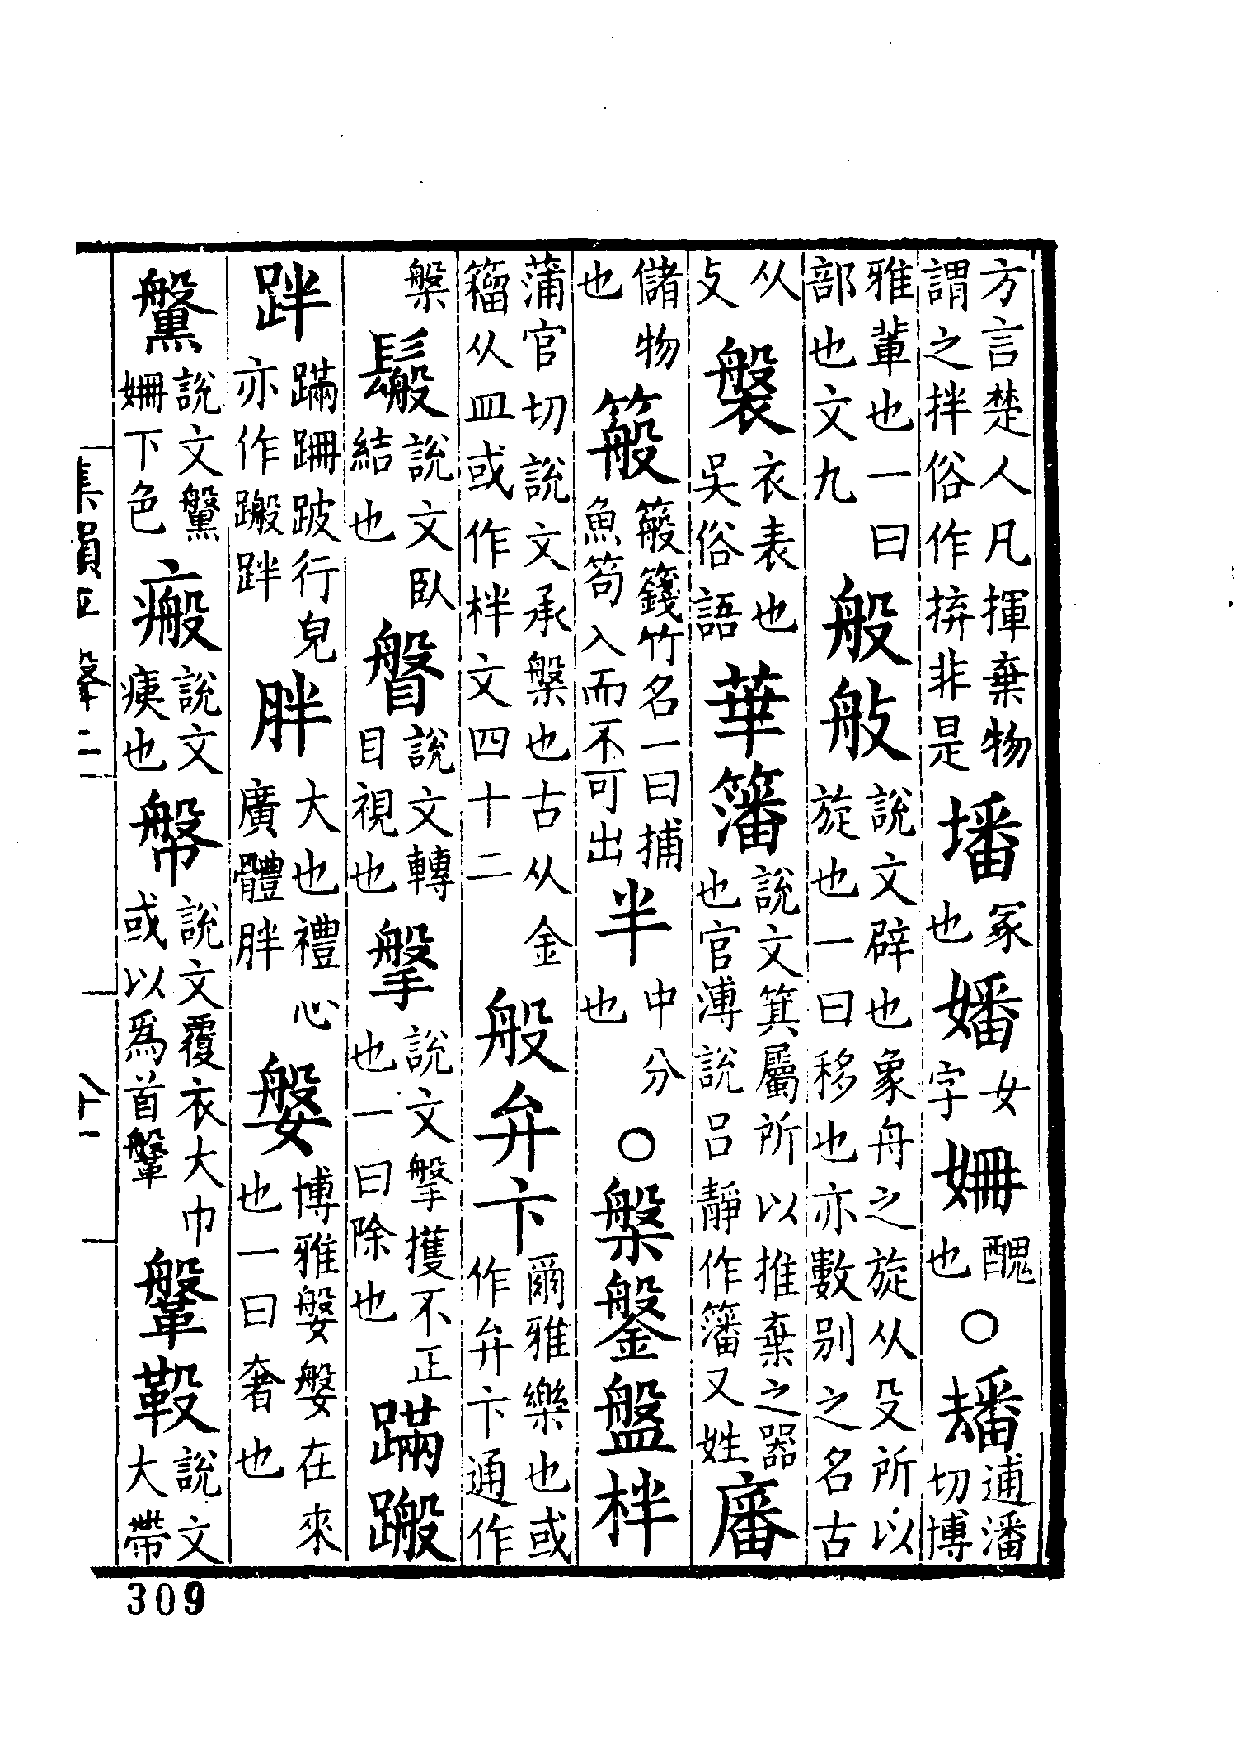 方言楚人凡揮棄物謂之拌俗作拚非是墦冢也嬏女字姍醜也○逋潘切博
雅軰也一曰部也文九般說文辟也象舟之旋从殳所以旋也一曰移也亦數别之名古
从攴褩衣表也吳俗語華籓說文箕屬所以推棄之器也官溥說呂靜作籓又姓
儲物也䈲䈲籛竹名一曰捕魚笱入而不可出半中分也○槃鎜盤柈
蒲官切說文承槃也古从金籀从皿或作柈文四十二般弁卞爾雅樂也或作弁卞通作
槃鬗說文臥結也䀨說文轉目視也搫說文搫擭不正也一曰除也蹣䠋
跘蹣跚跛行皃亦作䠋跘胖大也禮心廣體胖媻博雅媻媻在來也一曰奢也
說文姍下色瘢說文痍也幋說文覆衣大巾或以爲首鞶鞶說文大帶
集韻平聲二
309